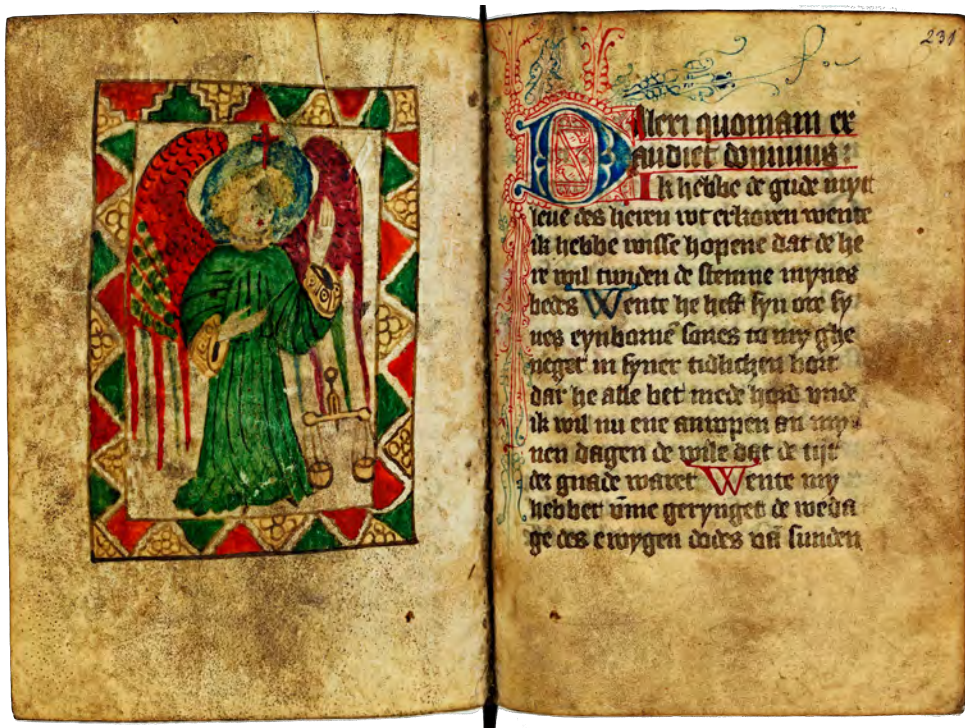 231
Dilexi quoniam ex
audiet dominus
Ik hebbe de gude myt
leue des heren vut erkoren wente
ik hebbe wisse hopene dat de he
re wil twiden de stemme mynes
bedes Wente he heft syn ore sy
nes eynbornē sones to my ghe
neget in syner tidlichen bort
dar he alle bet mede hord vnde
ik wil nu ene anropen an my
nen dagen de wile dat de tijt
der gnade waret Wente my
hebbet vm̄e gerynget de weda
ge des ewygen dodes vn̄ sunden